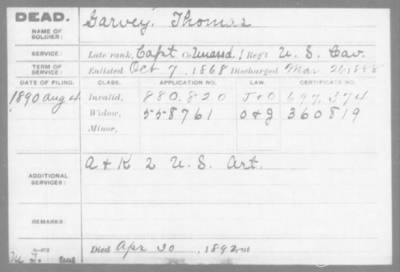 DEAD.
NAME OF SOLDIER: Garvey, Thomas
SERVICE: Late rank, Capt Co. Unassd, Reg't U. S. Cav.
TERM OF SERVICE: Enlisted Oct 7, 1868 Discharged Mar
DATE OF FILING. CLASS. APPLICATION NO. LAW. CERTIFICATE NO.
1890 Aug Invalid, 880.820 697.374
Widow, 558761 O & J 360819
Minor,
ADDITIONAL SERVICES: A & K 2 U.S. Art.
REMARKS:
Died Apr 20, 1892